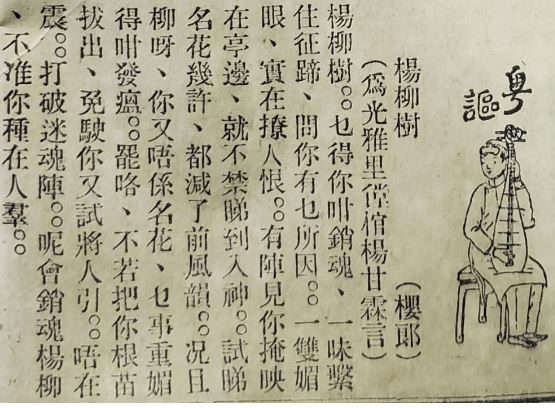 粵
謳
楊柳樹 (櫻郎)
(爲光雅里棺楊甘霖言)
楊柳樹。。乜得你咁銷魂、一味繫
住征蹄、問你有乜所因。。一雙媚
眼、實在撩人恨。。有陣見你掩映
在亭邊、就不禁睇到入神。。試睇
名花幾許、都減了前風韻。。况且
柳呀、你又唔係名花、乜事重媚
得咁發瘟。。罷咯、不若把你根苗
拔出、免駛你又試將人引。。唔在
震。。打破迷魂陣。。呢會銷魂楊柳
、不准你種在人羣。。